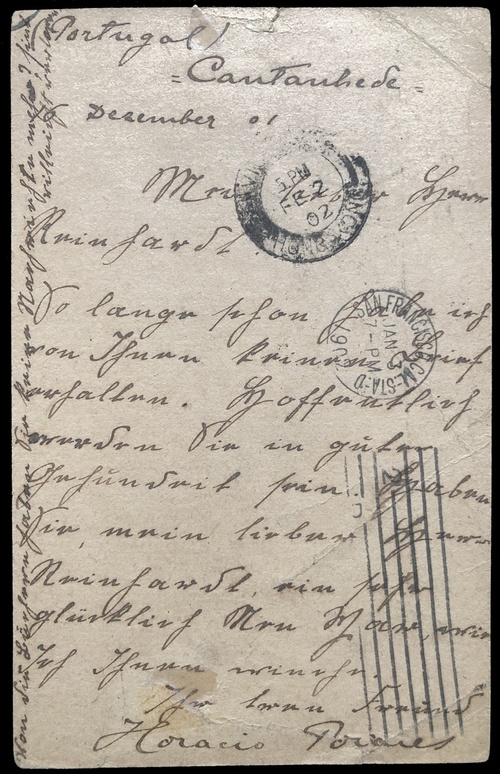 Portugal
= Cantanhede =
Dezember 01
Mein lieber Herr
Reinhardt.
So lange schon habe ich
von Ihnen keinen Brief
erhalten. Hoffentlich
werden Sie in guter
Gesundeit sein. Haben
Sie, mein lieber Herr
Reinhardt, ein sehr
glücklich Neu Yar, wie
Ich Ihnen winche.
Ihr treu Freund
Horacio
Von die Bücherer haben Sie keine Nachrichte mehr?
5 PM
FE 2
02
HONG
SAN FRANCISCO, CAL. STA-D
JAN 3
7-PM
1902
2